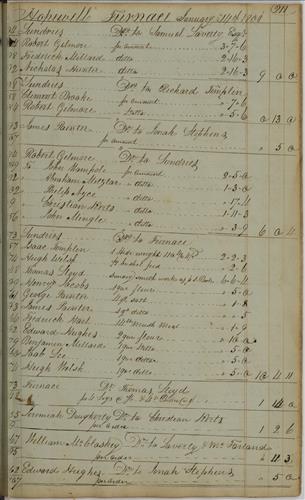 211
Hopewill Furnace January 14th 1804
Sundries Drs to Samuel Laverty Esqr
Robert Gilmore for amount 3-7-6
Frederich Millard ditto 2-16-3
Nicholas Hunter ditto 2-16-3 9 0 0
Sundries Drs to Richard Templin
Clement Brooke for amount " 7-6
Robert Gilmore ditto " 5-6 0 13 0
James Painter Dr to Jonah Stephens
for amount " 5 0
Robert Gilmore Dr to Sundries
To John Wampole for amount 2-5-0
Abraham Metzlar ditto 1-3-0
Philip Nyce ditto 17-4
Christian Werts ditto 1-11-3
John Mingle ditto 3-9 6 0 4
Sundries Drs to Furnace
Isaac Templin 2-2-3
Hugh Welsh 2-6
Thomas Lloyd 6-6-4
Nancy Jacobs 1 qr flour 5-0
George Painter 1-8
James Painter ditto 5
Frederick Hart Meal 1-9
Edward Hughes 2 qr flour 10-0
Benjamin Millard 1 qr ditto 5-0
Noah Lee 1 qr ditto 5-0
Hugh Welsh 1 qr ditto 5-0 10 4 11
Furnace Dr Thomas Lloyd
1 14 0
Jeremiah Daugherty Dr to Christian Werts
per order 1 2 6
William McClaskey Dr to Laverty & McFarland
per order 11 3
Edward Hughes Dr to Jonah Stephens
per order 5 0